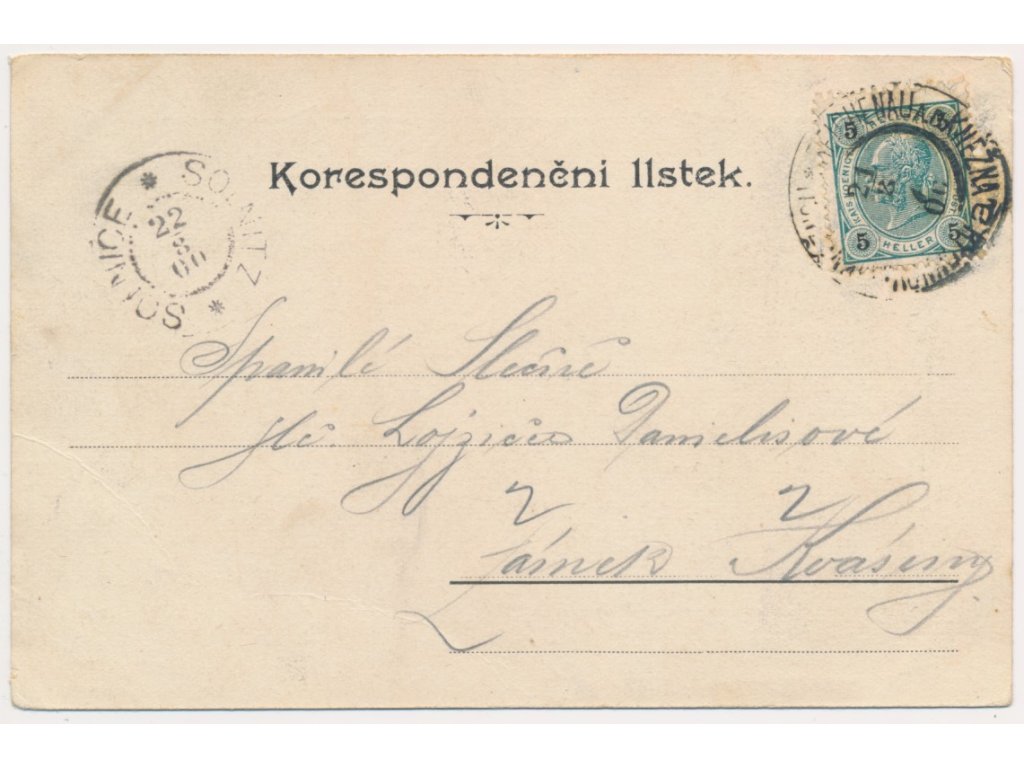 Korespondenční lístek.
SOLNITZ * SOLNICE *
22
8
00
5 5
KAIS. KOENIGL. OEST. POST
5 HELLER 5
21
8
00
Spanilé Slečně
slč. Lojzičce Danielisové
Zámek Kvásiny